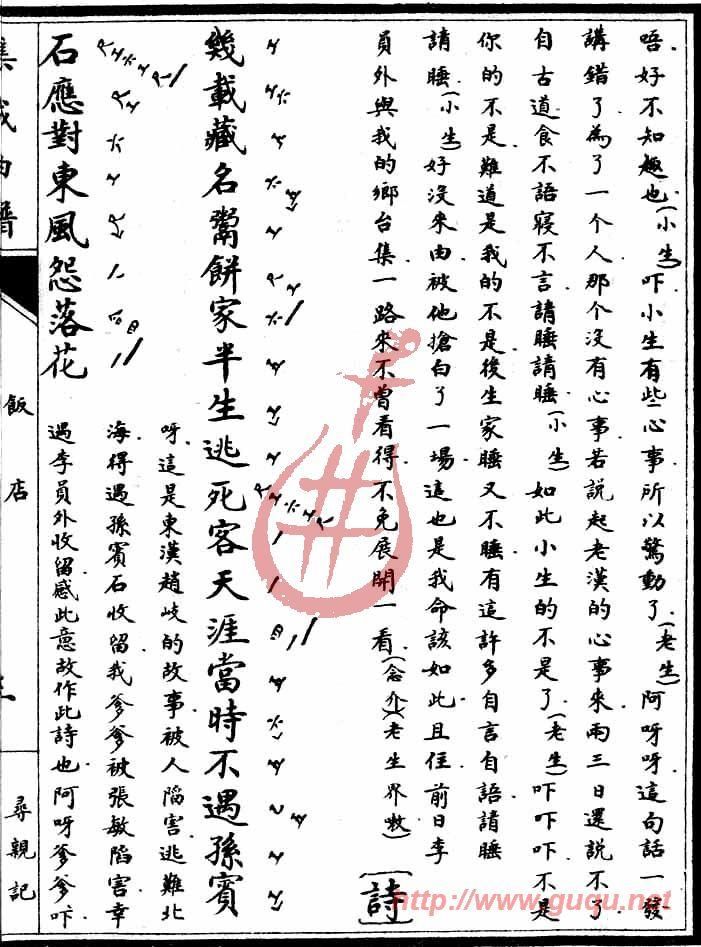 唔好不知趣也(小生)吓小生有些心事所以驚動了(老生)阿呀呀這句話一發
講錯了為了一个人那个沒有心事若說起老漢的心事來兩三日還說不了
自古道食不語寢不言請睡請睡(小生)如此小生的不是了(老生)吓吓吓不是
你的不是難道是我的不是後生家睡又不睡有這許多自言自語請睡
請睡(小生)好沒來由被他搶白了一場這也是我命該如此且住前日李
員外與我的鄉台集一路來不曾看得不免展開一看(念介)(老生界嗽)[詩]
幾載藏名鬻餅家半生逃死客天涯當時不遇孫賓
石應對東風怨落花
呀這是東漢趙岐的故事被人陷害逃難北
海得遇孫賓石收留我爹爹被張敏陷害幸
遇李員外收留感此意故作此詩也阿呀爹爹吓
集成曲譜
飯店
尋親記
http://www.guqu.net